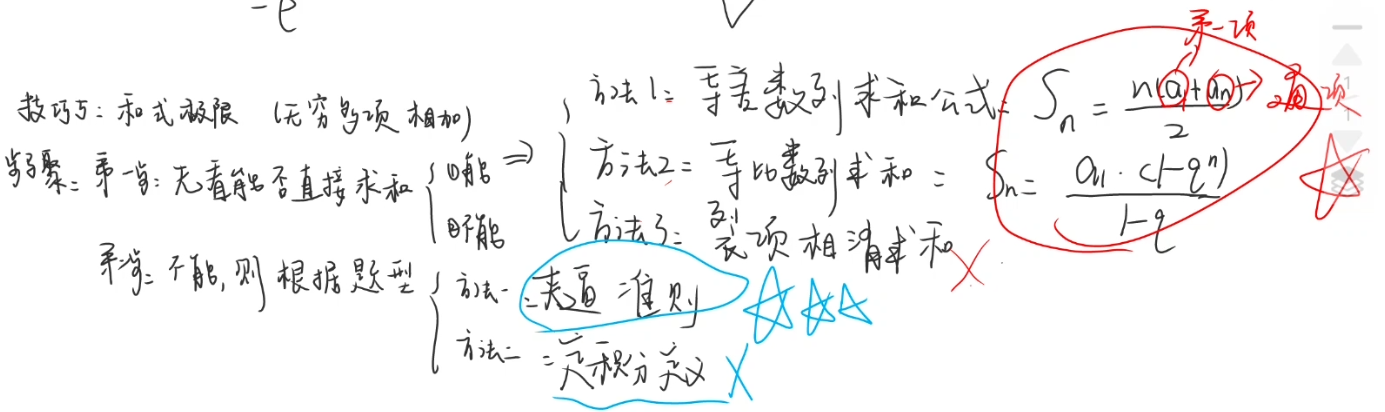 -e
第一项
技巧5: 和式极限 (无穷多项相加)
方法1: 等差数列求和公式: Sn = n(a1+an)/2 → 项
步骤: 第一步: 先看能否直接求和 { ①能 ⇒
方法2: 等比数列求和: Sn = a1·(1-q^n)/1-q
②不能
方法3: 裂项相消求和 ×
第二步: 不能, 则根据题型 { 方法一: 夹逼准则
方法二: 定积分定义 ×